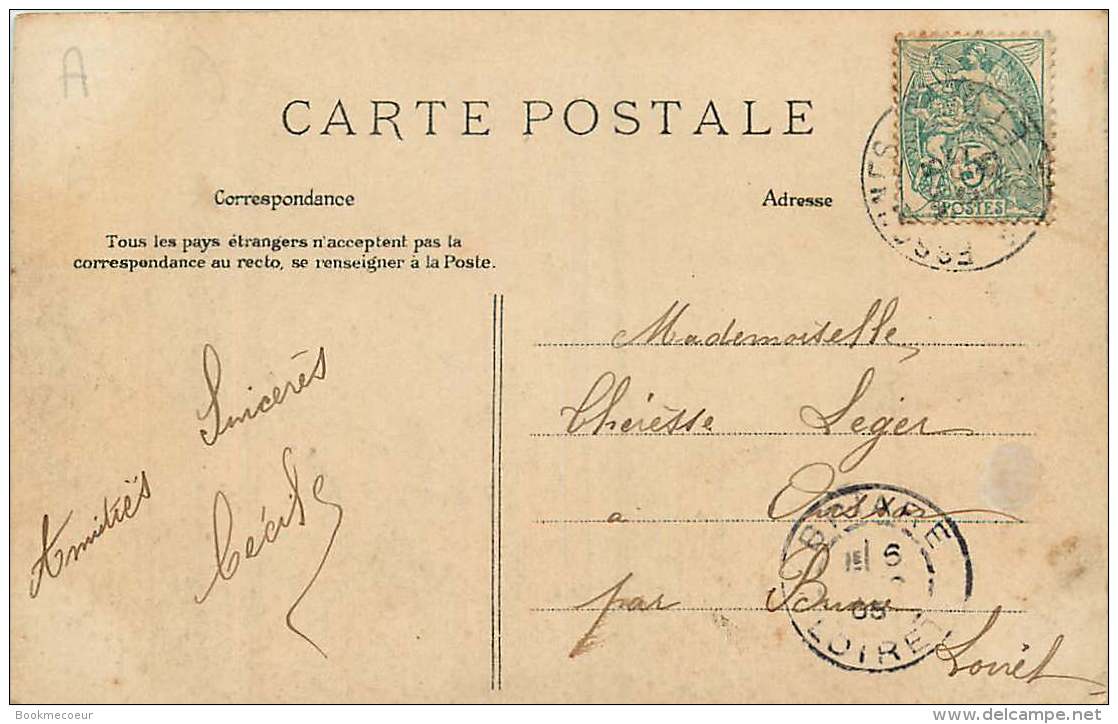 A
CARTE POSTALE
Correspondance
Adresse
Tous les pays étrangers n'acceptent pas la
correspondance au recto, se renseigner à la Poste.
5
POSTES
Sincerès
Amitiés
Cécile
Mademoiselle,
Thérèsse Leger
à
par
Loirèt
BRIARE
6
05
LOIRET
Bookmecoeur
delcampe.net